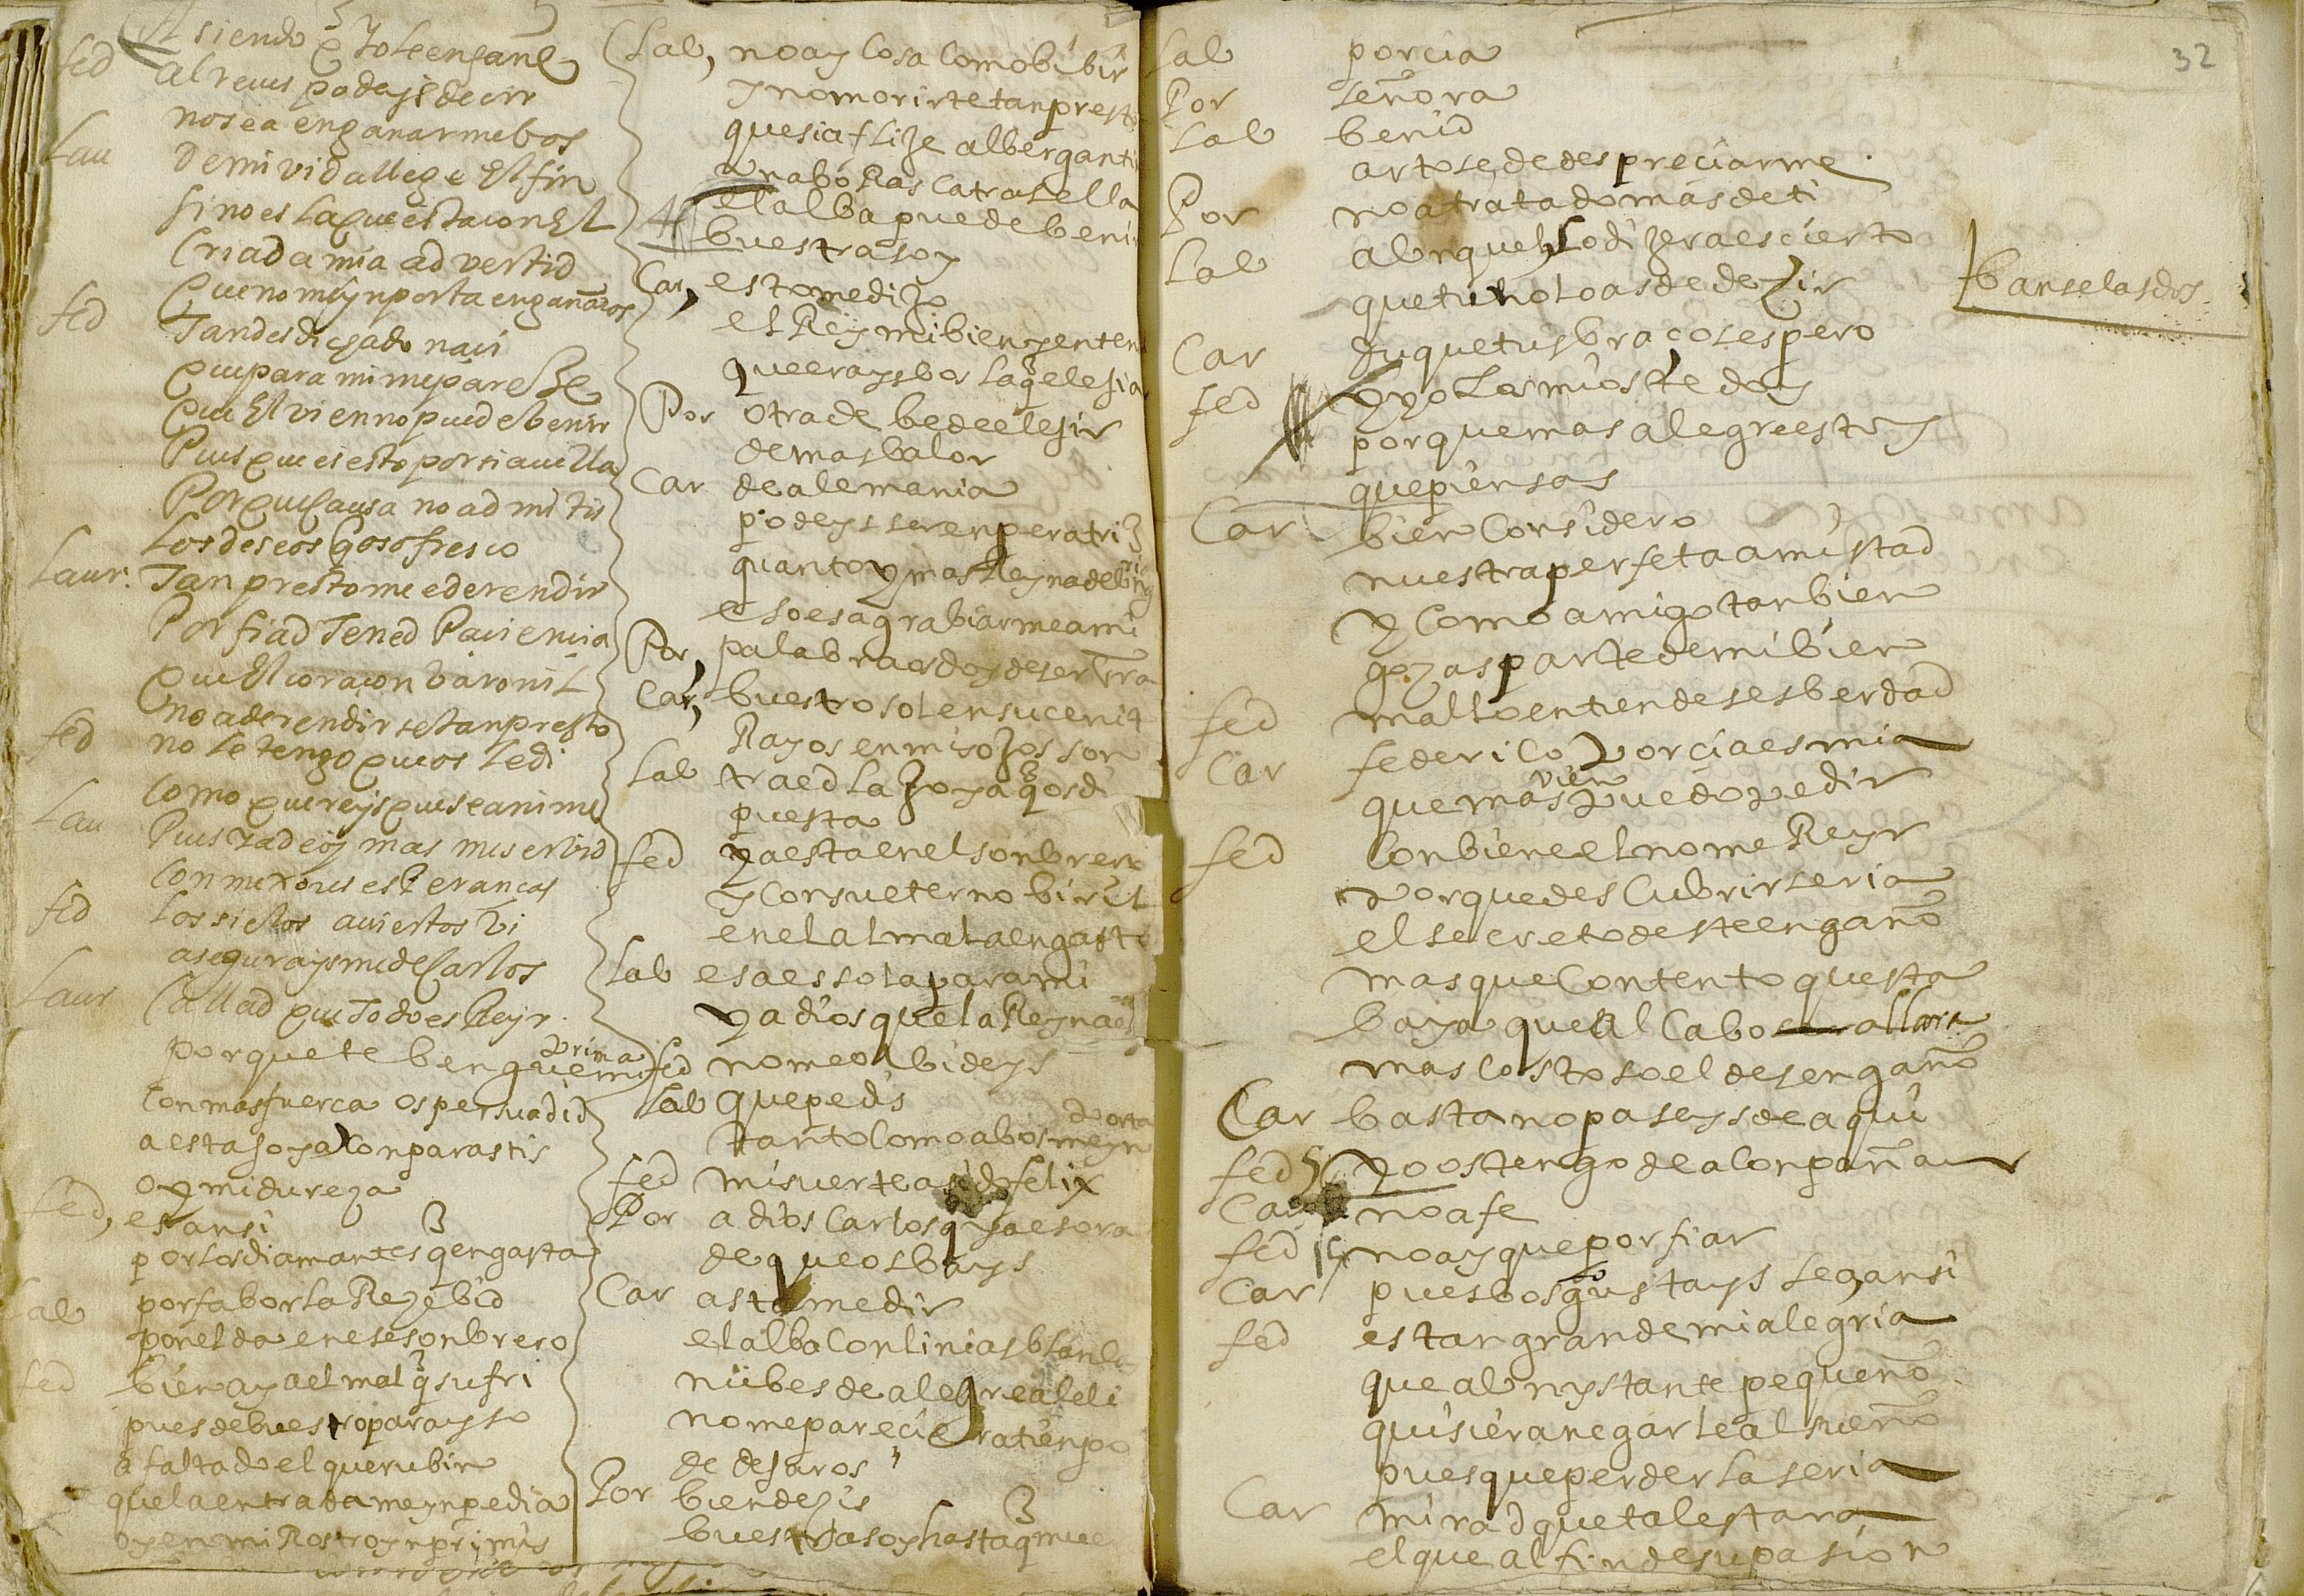 siendo q̃ Jo le engañe
fed al reues podeys decir
no sea enganarme bos
Lau De mi vida llege El fin
si no es la que esta con El
Criada mia advertid
que no me ynporta engañaros
fed Tan desdichado naci
que para mi me pareçe
que El vien no puede benir
Pues que es esto porsia
Por que causa no ad mi tis
Los deseos
Laur. Tan presto me e de rendir
Porfiad Tened Paciencia
que El coraçon baronil
no a de rendirse tan presto
fed no le tengo que os le di
Lau Como quereys que se anime
Pues Ja deos mas me serbid
con mexores esperanças
fed Los sielos auiertos bi
asegurays me de Carlos
Laur Callad que Todo es Reyr
porque te bengue mi prima
con mas fuerça os persuadid
a esta joya conparastis
oy mi dureza
fed, es ansi
por los diamantes q̃ engasta
Lau por fabor la Rezebid
ponelda en ese sonbrero
fed bien ay a el mal q̃ sufri
pues de buestro parayso
a faltado el querubin
que la entrada me ynpedia
oy en mi Rostro ynprimis
Lau, no ay cosa como bibir
y no morirte tan presto
que si aflije al bergantin
una boRasca tras ella
el alba puede benir
buestra soy
Car, esto me dijo
el Rey mi bien y enten
que erays bos la q̃ elejia
Por otra de be de elejir
de mas balor
Car de alemania
podeys ser enperatriz
quanto y mas Reyna de
eso es agrabiarme a mi
Por, palabra os doy de ser bra
Car, buestro sol en su cenit
Rayos en mis ojos son
Lau traed la joya q̃ os di
puesta
fed ya esta en el sonbrero
y con su eterno biril
en el alma la engaste
Lau esa es sola para mi
y a dios que la Reyna
fed no me olbideys
Lau que pedis
tanto como a bos me ynporta
fed mi suerte a sido felix
Por a dios Carlos q̃ ya es ora
de que os bays
Car asta medir
el alba con linias blancas
nubes de alegre aleli
no me pareciera tienpo
de dejaros
Por bien dezis
buestra soy hasta q̃ mue
32
Lau porcia
Por señora
Lau benid
arto se de despreciarme
Por no a tratado mas de ti
Lau aunque lo dijera es cierto
que tu no lo as de dezir
banse las dos
Car duque tus braços espero
fed y yo los mios te doy
porque mas alegre estoy
que piensas
Car bien considero
nuestra perfeta amistad
y como amigo tan bien
gozas parte de mi bien
fed mal lo entiendes es berdad
Car federico porcia es mia
que mas bien puedo pedir
fed conbiene el no me Reyr
porque descubrir seria
el secreto deste engaño
mas que contento questa
baya que al cabo allara
mas costoso el desengaño
Car basta no paseys de aqui
fed yo os tengo de aconpañar
Car no a fe
fed no ay que porfiar
Car pues bos gustays sea ansi
fed es tan grande mi alegria
que aun ynstante pequeño
quisiera negarle al sueño
pues que perderla seria
Car mirad que tal estara
el que al fin de su pasion